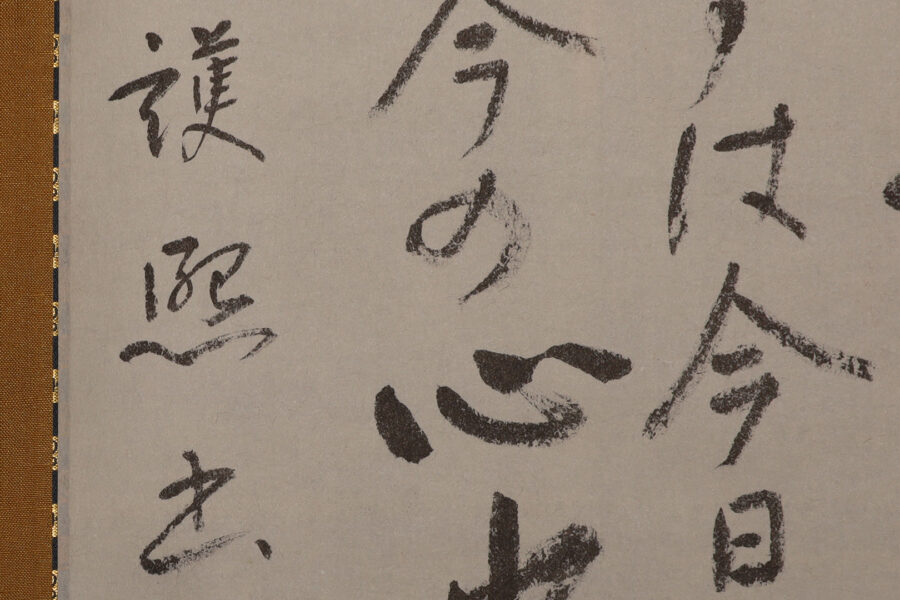 は今日
今の心
護熙書